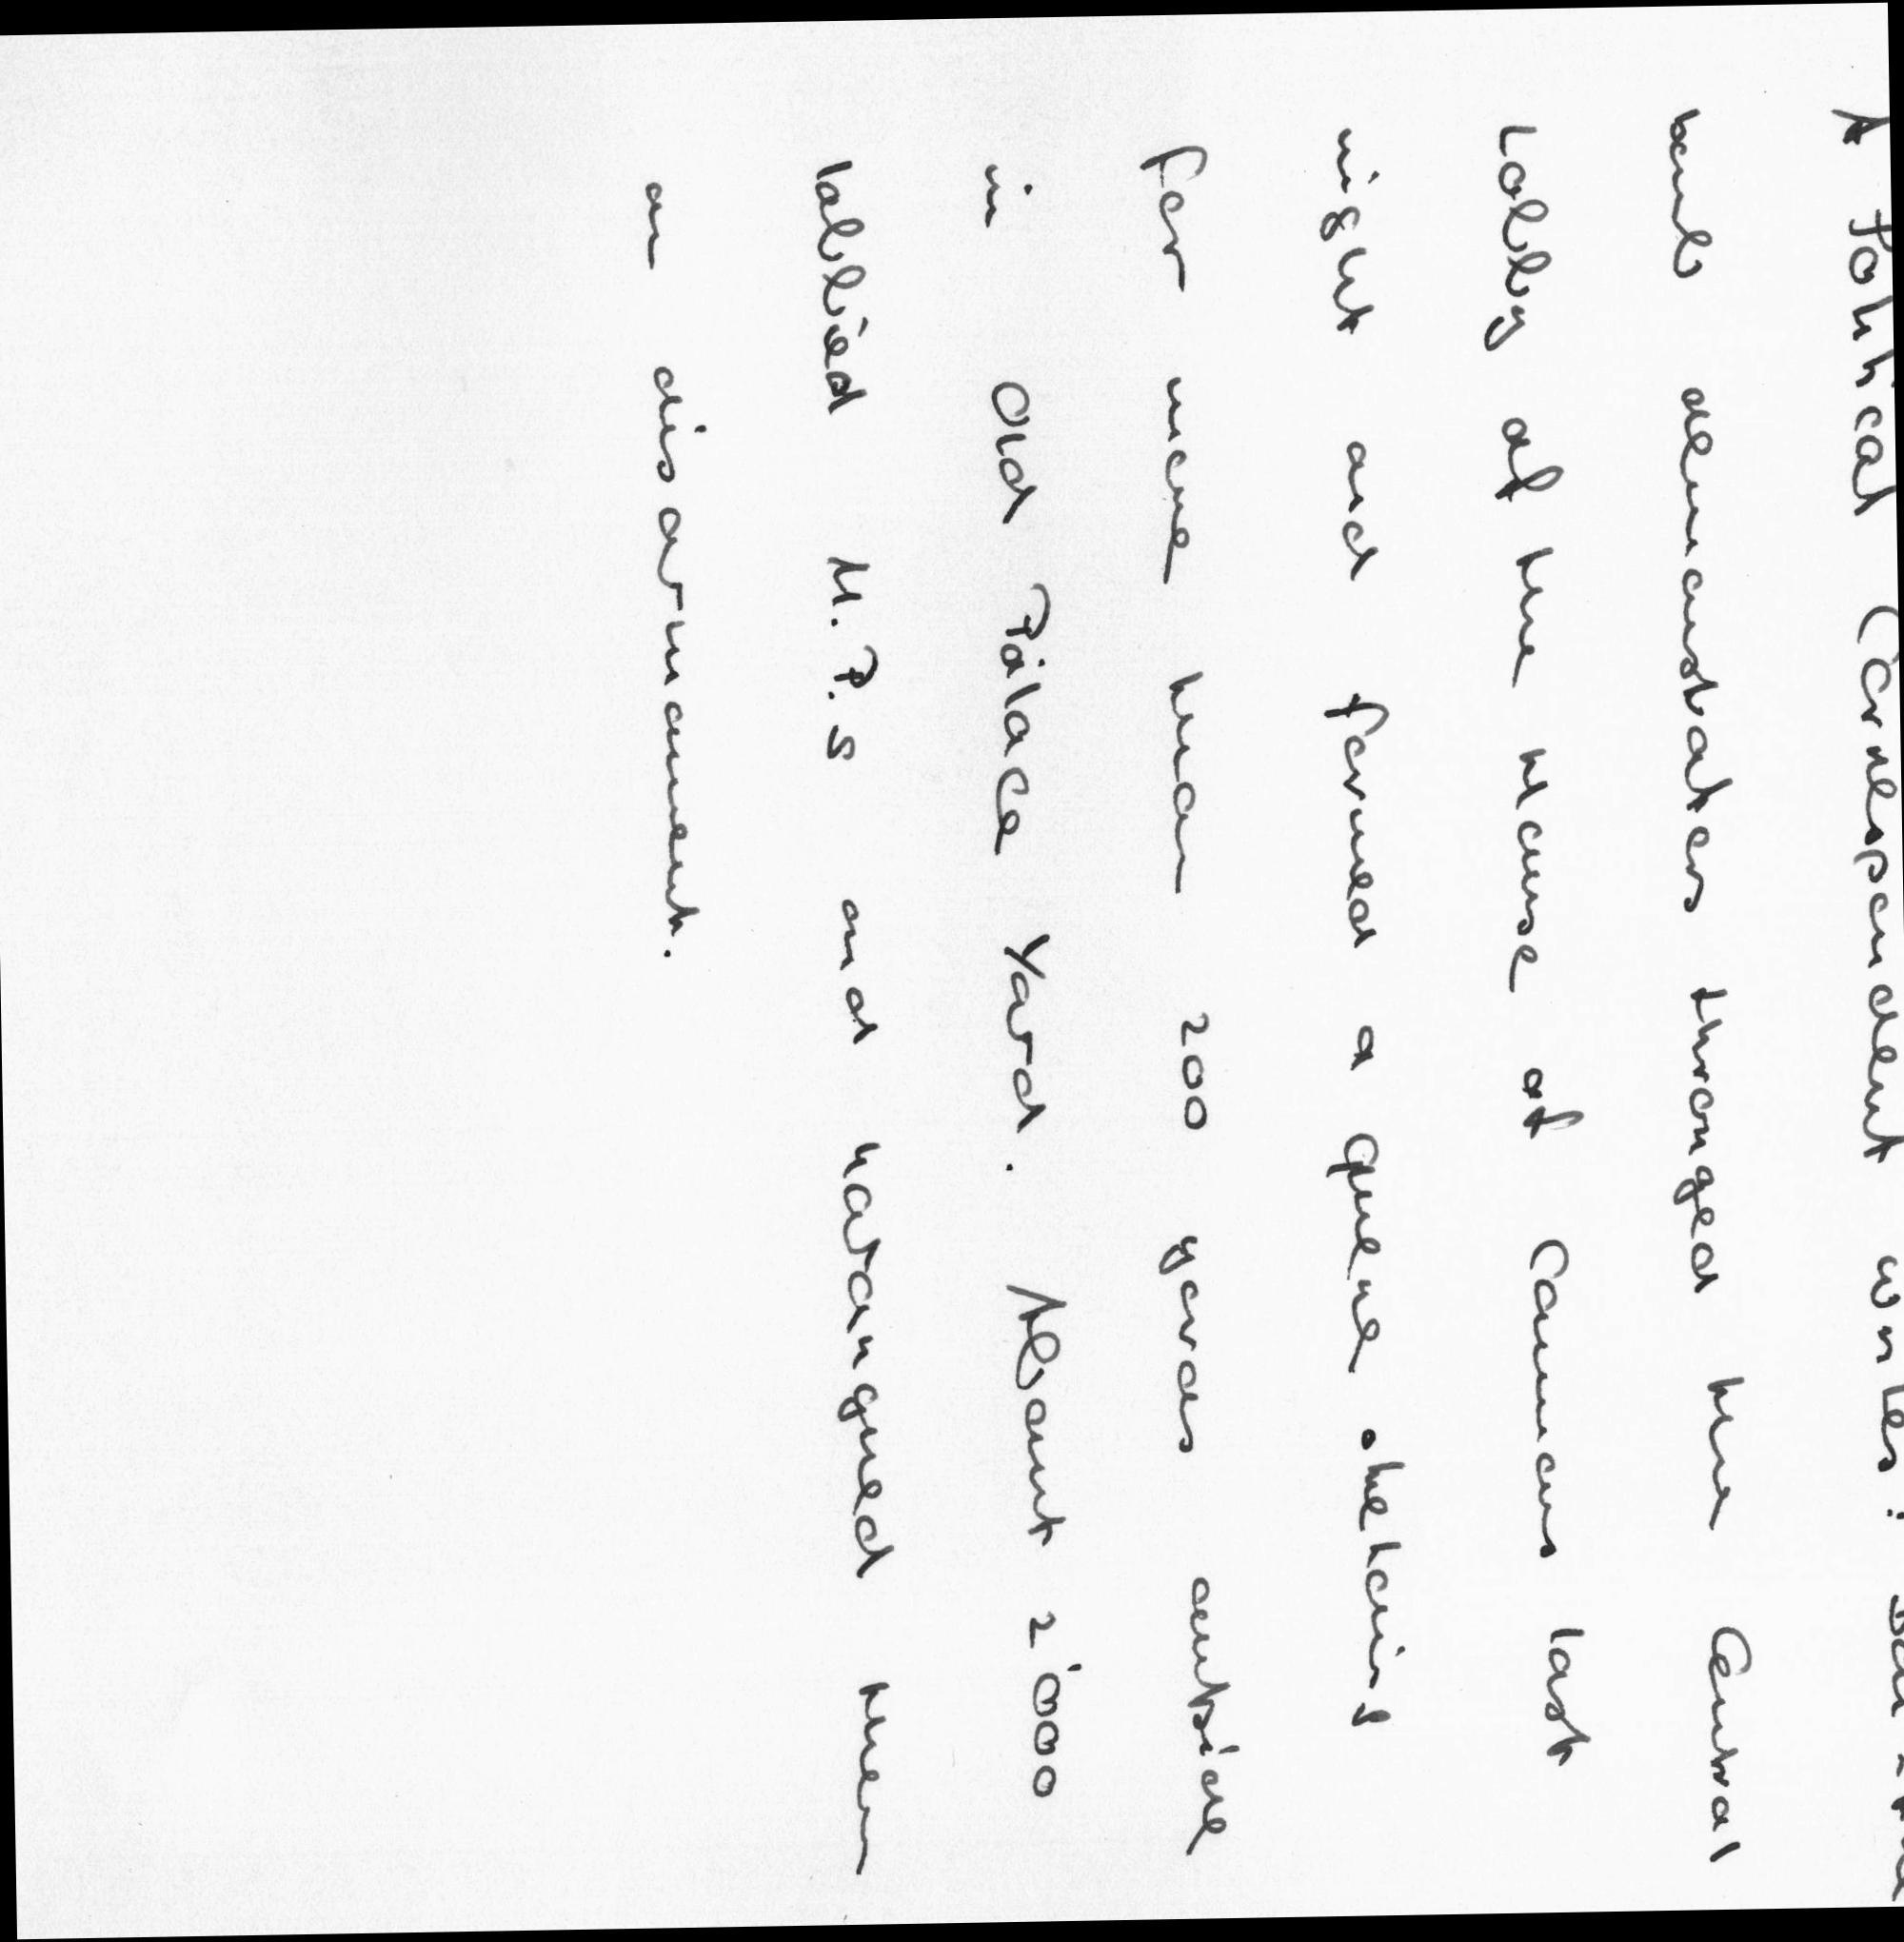 A Political Correspondent writes:
bomb demonstrators thronged the Central
Lobby of the House of Commons last
night and formed a queue stretching
for more than 200 yards outside
in Old Palace Yard. About 2'000
lobbied M.P.s and harangued them
on disarmament.